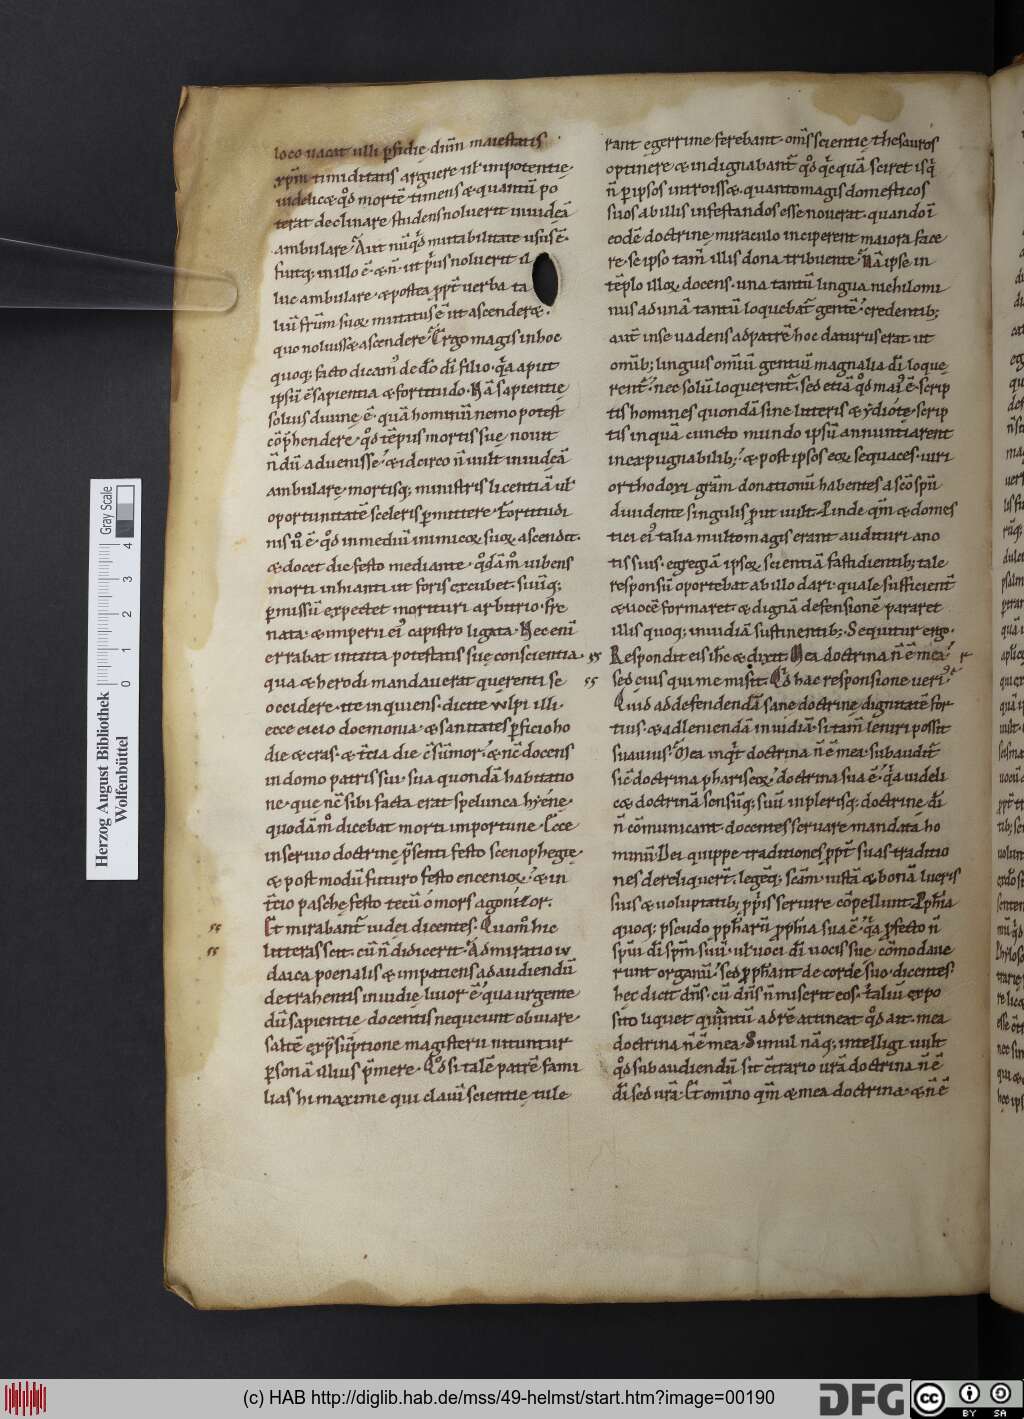 loco uacat ulli p̄fidię diuin̄ maiestatis
xp̄m timiditatis arguere ut͛ impotentię·
uidelicet qđ mortē timens & quantū po
terat declinare studens noluerit in iudęā
ambulare· Aut nūqđ mutabilitate usus ē·
fuitq; in illo ē & n̄ ut p̄us noluerit il
luc ambulare· & postea ꝓpt̄ uerba ta
liū fr̄m suoꝝ mutatus ē ut ascenderet·
quo noluisset ascendere· Ergo magis in hoc
quoq; facto dicam᾽ de dō dī filio· q̄a aput
ipsū ē sapientia & fortitudo· Nā sapientię
solius diuinę ē· quā hominū nemo potest
cōp̄hendere· qđ tēpus mortis suę nouit
n̄dū aduenisse· & idcirco n̄ uult in iudęā
ambulare· mortisq; ministris licentiā ut͛
oportunitatē sceleris p̄mittere· Fortitudi
nis u͛o ē· qđ in mediū inimicoꝝ suoꝝ ascendit·
& docet die festo mediante· qđāmͦ iubens
morti inhianti ut foris excubet· suūq;
p̄missū expectet morituri arbitrio· fre
nata· & imperii ei᾽ capistro ligata· Nec enī
errabat intuita potestatis suę conscientia·
qua & herodi mandauerat querenti se
occidere· ite inquiens· dicite wlpi illi·
ecce eicio doemonia· & sanitates p̄ficio ho
die & cras· & t̄cia die c̄sūmor· & nc̄ docens
in domo patris sui· sua quondā habitatio
ne· que nc̄ sibi facta erat spelunca hyęne·
quodāmͦ dicebat morti importune· Ecce
in seruio doctrinę p̄senti festo scenophegię·
& post modū futuro festo encenioꝝ· & in
t̄cio paschę festo tecū ó mors agonizor·
Et mirabant̄ iudei dicentes· Quomͦ hic
litteras scit· cū n̄ didicerit· Admiratio iu
daica poenalis & impatiens ad audiendū
detrahentis inuidię liuor ē· qua urgente
dū sapientię docentis nequeunt obuiare·
saltē exp̄sūptione magisterii nituntur
p̄sonā illius p̄mere· Qđ si talē patrē fami
lias hi maxime qui clauī scientię tule
rant egerrime ferebant· om̄s scientię thesauros
optinere & indignabant̄ qđ qc̄quā sciret is q̄
n̄ p̄ ipsos introisset· quanto magis domesticos
suos ab illis infestandos esse nouerat· quando ī
eodē doctrinę miraculo inciperent maiora face
re· se ipso tam̄ illis dona tribuente· Nā ipse in
tēplo illoꝝ docens· una tantū lingua nichilomi
nus ad unā tantū loquebat̄ gentē· credentib;
aut̄ in se uadens ad patrē hoc daturus erat· ut
omīb; linguis omīū gentiū magnalia dī loque
rent̄· nec solū loquerent̄· sed etiā qđ mai᾽ ē· scrip
tis homines quondā sine litteris & ydióte· scrip
tis inquā cuncto mundo ipsū annuntiarent
inexpugnabilib; & post ipsos eoꝝ sequaces· uiri
orthodoxi grām donationū habentes a scō spū
diuidente singulis p̄ut uult· Pinde qm̄ & domes
tici ei᾽ talia multo magis erant audituri a no
tis suis· egregiā ipsoꝝ scientiā fastidientib; tale
responsū oportebat ab illo dari· quale sufficient̄
& uocē formaret· & dignā defensionē pararet
illis quoq; inuidiā sustinentib;· Sequitur ergo·
Respondit eis ih̄c & dixit· Mea doctrina n̄ ē mea·
sed eius qui me misit· Qd̄ hac responsione ueri᾽
Quid ad defendendā sane doctrinę dignitatē for
tius· & ad leniendā inuidiā· si tam̄ leniri possit
suauius· Mea inqt̄ doctrina n̄ ē mea· subaudit̄
sic̄ doctrina phariseoꝝ· doctrina sua ē· q̄a uideli
c& doctrinā sensūq; suū in plerisq; doctrine dī
n̄ cōmunicant· docentes seruare mandata ho
minū· Dei quippe traditiones ꝓpt̄ suas traditio
nes dereliquer̄t· legēq; scām· iustā & bonā lucris
suis & uoluptatib; p̄pris seruire cōpellunt· Ꝓph̄ia
quoq; pseudo ꝓph̄arū ꝓph̄ia sua ē· q̄a p̄fecto n̄
spūi dī spm̄ suū· ut͛ uoci dī uocis sue cōmodaue
runt organū· sed ꝓph̄ant de corde suo· dicentes·
hęc dicit dn̄s· cū dn̄s n̄ miserit eos· taliū expo
sito liquet quantū ad rē attineat qđ ait· mea
doctrina n̄ ē mea· Simul nāq; intelligi uult
qđ subaudiendū sit c̄trario ur̄a doctrina n̄ ē
dī sed ur̄a· Et omīno qm̄ & mea doctrina· & n̄ ē
Herzog August Bibliothek
Wolfenbüttel
0 1 2 3 4
Gray Scale
(c) HAB http://diglib.hab.de/mss/49-helmst/start.htm?image=00190
DFG
cc BY SA